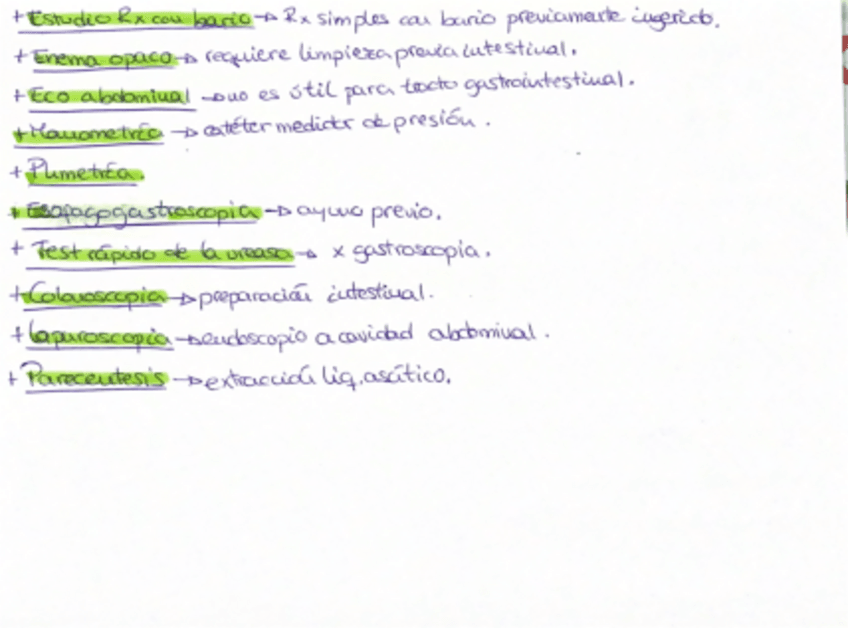 + Estudio Rx con bario → Rx simples con bario previamente ingerido.
+ Enema opaco → requiere limpieza previa intestinal.
+ Eco abdominal → no es útil para tracto gastrointestinal.
+ Manometría → catéter medidor de presión.
+ Pumetría.
+ Esofagogastroscopia → ayuno previo.
+ Test rápido de la ureasa → x gastroscopia.
+ Colonoscopia → preparación intestinal.
+ Laparoscopia → endoscopio a cavidad abdominal.
+ Paracentesis → extracción líq. ascítico.